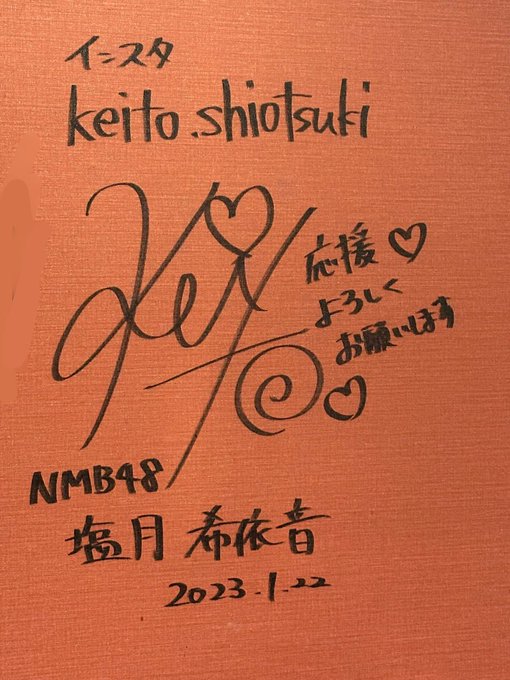 インスタ
keito.shiotsuki
Keito
応援♡
よろしく
お願いします
♡
NMB48
塩月 希依音
2023.1.22